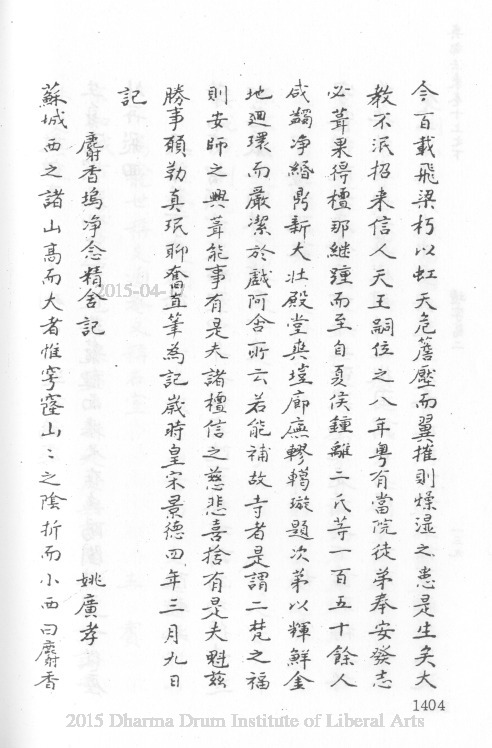 今百載飛梁朽以虹天危簷壓而翼摧則燥濕之患是生矣大
教不泯招来信人天王嗣位之八年粤有當院徒弟奉安發志
必葺果得檀那継踵而至自夏侯鍾離二氏等一百五十餘人
咸蠲净緡鼎新大壮殿堂爽塏廊廡轇轕璇題次第以輝鮮金
地廻環而嚴潔於戲阿含所云若能補故寺者是謂二梵之福
則安師之興葺能事有是夫諸檀信之慈悲喜捨有是夫魁兹
勝事願勒真珉聊奮直筆為記歲時皇宋景德四年三月九日
記
麝香塢净念精舍記
姚廣孝
蘇城西之諸山高而大者惟穹窿山〻之陰折而小西曰麝香
2015-04-17
1404
2015 Dharma Drum Institute of Liberal Arts